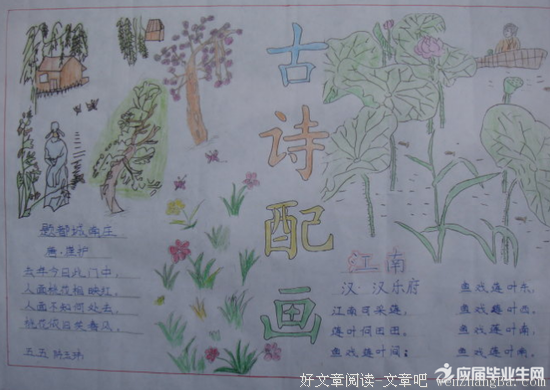 古诗配画
题都城南庄
唐·崔护
去年今日此门中,
人面桃花相映红,
人面不知何处去,
桃花依旧笑春风。
五五
江南
汉 汉乐府
江南可采莲,
莲叶何田田,
鱼戏莲叶间;
鱼戏莲叶东,
鱼戏莲叶西,
鱼戏莲叶南,
鱼戏莲叶
好文章阅读-文章吧
应届毕业生网